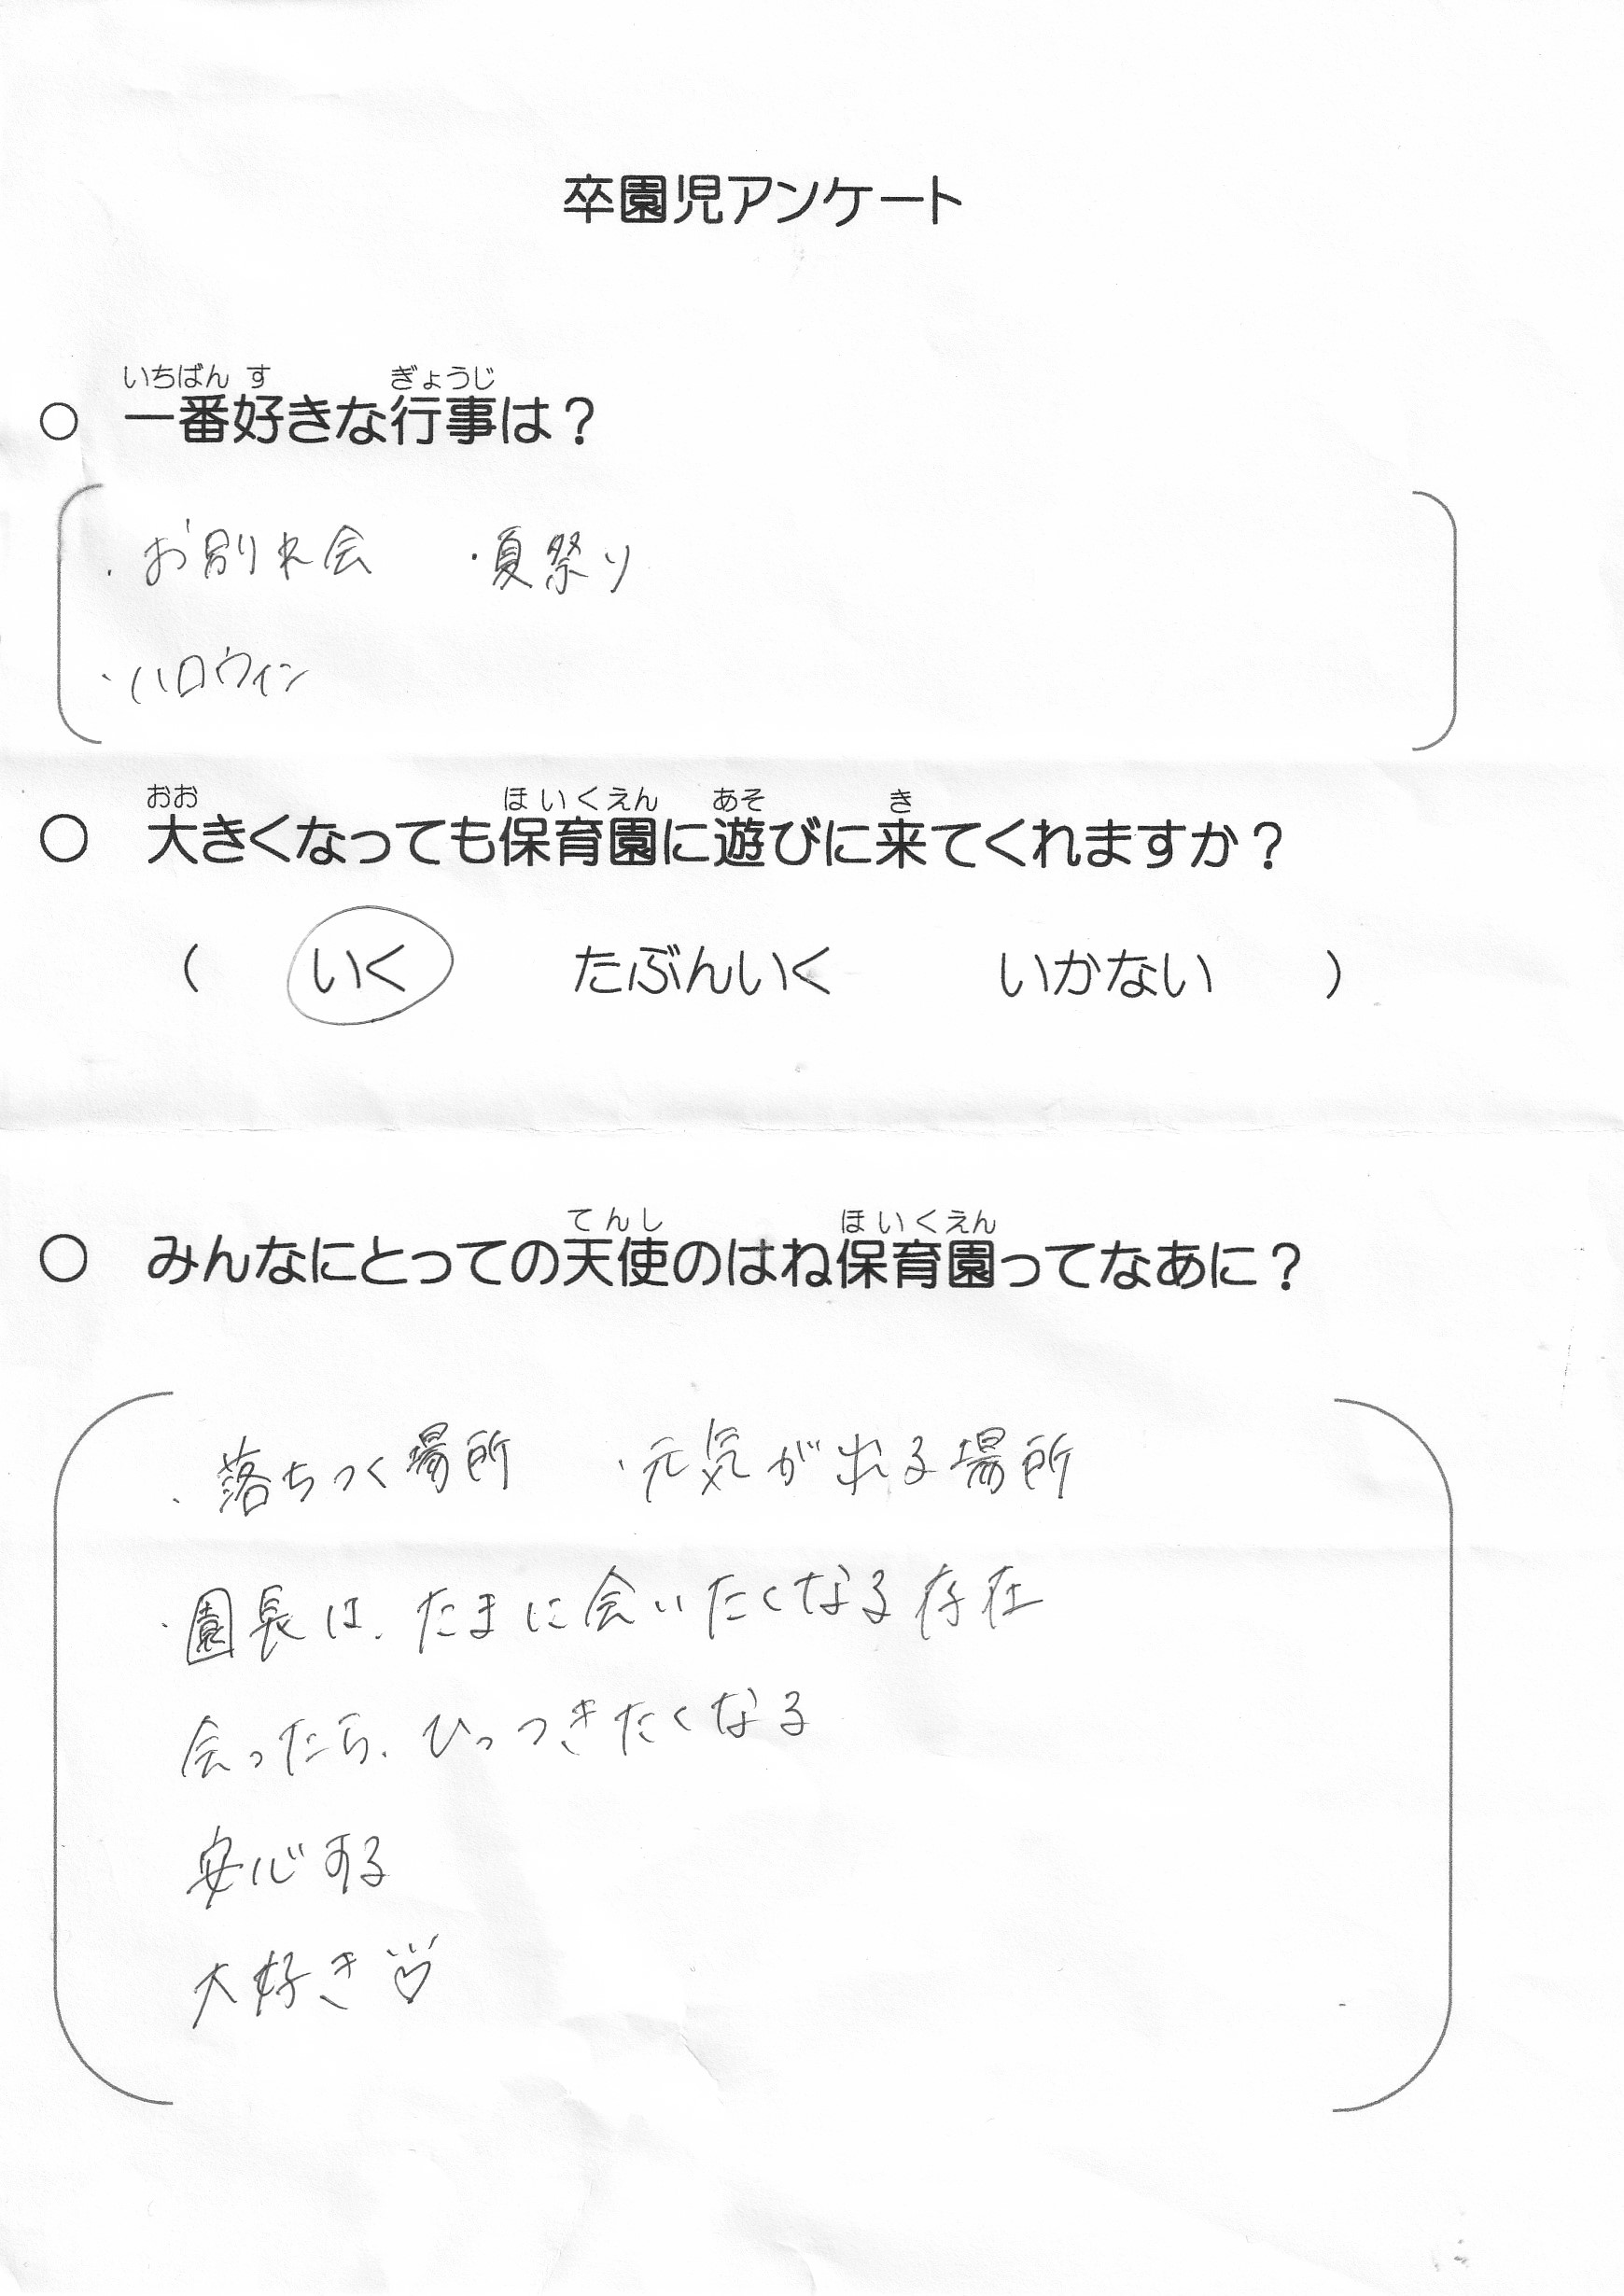 卒園児アンケート
いちばん す ぎょうじ
○ 一番好きな行事は？
・お別れ会 ・夏祭り
・ハロウィン
おお ほいくえん あそ き
○ 大きくなっても保育園に遊びに来てくれますか？
（ いく たぶんいく いかない ）
てんし ほいくえん
○ みんなにとっての天使のはね保育園ってなあに？
・落ちつく場所 ・元気が出る場所
・園長は、たまに会いたくなる存在
会ったら、ひっつきたくなる
安心する
大好き♡